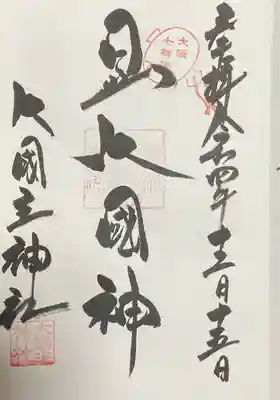 奉拝 令和四年十二月十五日
大阪
七福神
日出大國神
大國主神社